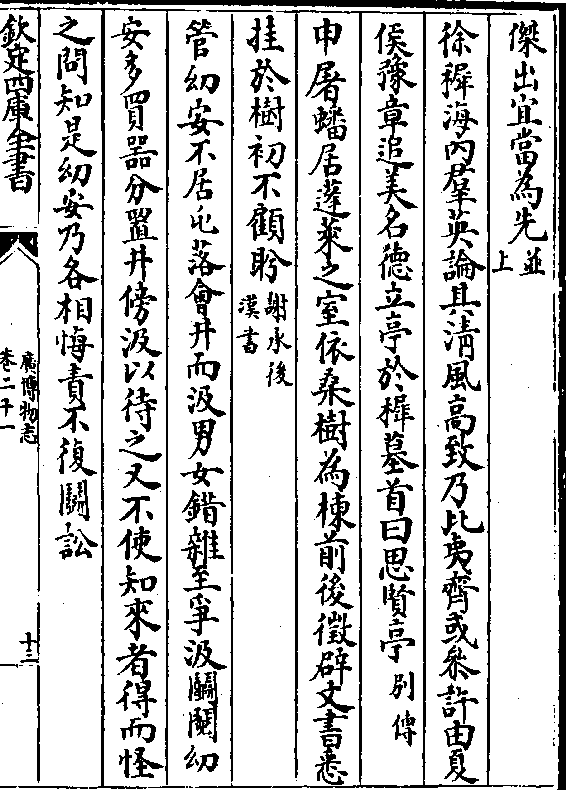 傑出宜當為先並上
徐穉海內羣英論其清風高致乃比夷齊或㕘許由夏
侯豫章追美名德立亭於穉墓首曰思賢亭别傳
申屠蟠居蓬萊之室依桑樹為棟前後徵辟文書悉
挂於樹初不顧盻謝承後漢書
管幼安不居屯落會井而汲男女錯雜至爭汲鬬䦧幼
安多買器分置井傍汲以待之又不使知來者得而怪
之問知是幼安乃各相悔責不復鬬訟
欽定四庫全書
廣博物志
卷二十一
十二